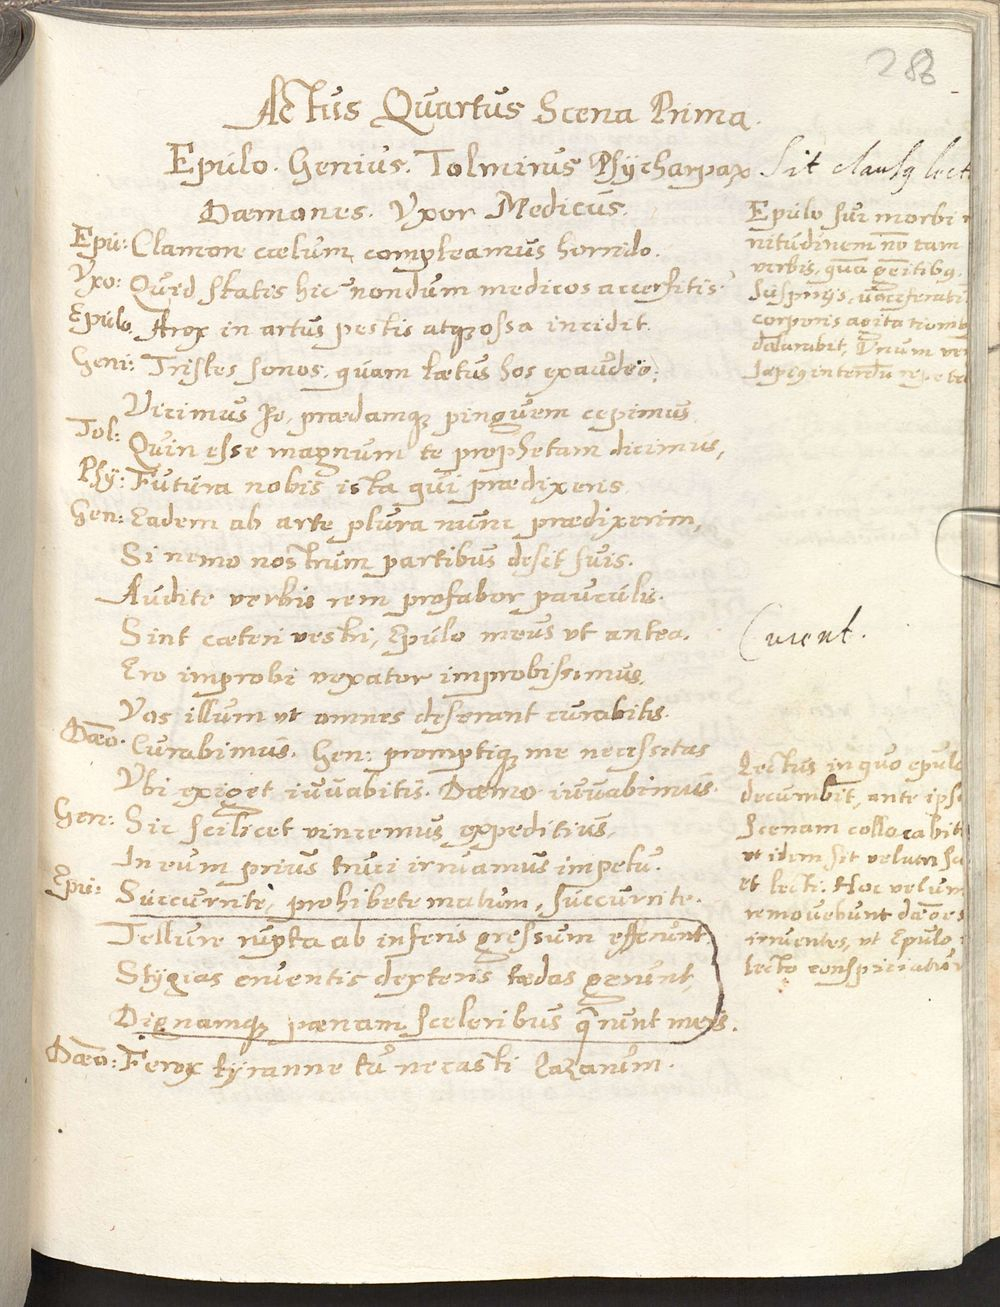 288
Actus Quartus Scena Prima.
Epulo. Genius. Tolmirus Psycharpax
Dæmones. Vxor Medicus.
Epu: Clamore cœlum compleamus horrido.
Vxo: Quid statis hic nondum medicos accersitis?
Epulo. Atrox in artus pestis atq; ossa incidit.
Geni: Tristes sonos, quam lætus hos exaudio;
Vicimus Io, prædamq; pinguem cepimus
Tol: Quin esse magnum te prophetam dicimus,
Psy: Futura nobis ista qui prædixeris
Gen: Eadem ab arte plura nunc prædixerim,
Si nemo nostrum partibus desit suis.
Audite verbis rem profabor pauculis.
Sint cæteri vestri, Epulo meus vt antea.
Ero improbi vexator improbissimus,
Vos illum vt omnes deserant curabitis.
Dæo. Curabimus. Gen: promptiq; me necessitas
Vbi exiget iuuabitis. Dæmo iuuabimus.
Gen: Sic scilicet vincemus expeditius,
In eum prius truci irruamus impetu.
Epu: Succurrite, prohibete malum, succurrite.
Tellure rupta ab inferis gressum efferunt
Stygias cruentis dexteris tædas gerunt,
Dignamq; pœnam sceleribus q̃runt meis.
Dæo: Ferox tyranne tu necasti Lazarum.
Sit clausq lect
Epulo sui morbi
nitudinem nõ tam
verbis, quã gẽitibq.
suspirijs, vociferati
corporis agita tionib
declarabit, Vnum ver
sæpiq interdũ repete
Curent.
Lectus in quo epulo
decumbit, ante ips
scenam collocabit
vt idem sit velum sc
et lecti. Hoc velum
remouebunt dæões
irruentes, vt Epulo
lecto conspiciatur